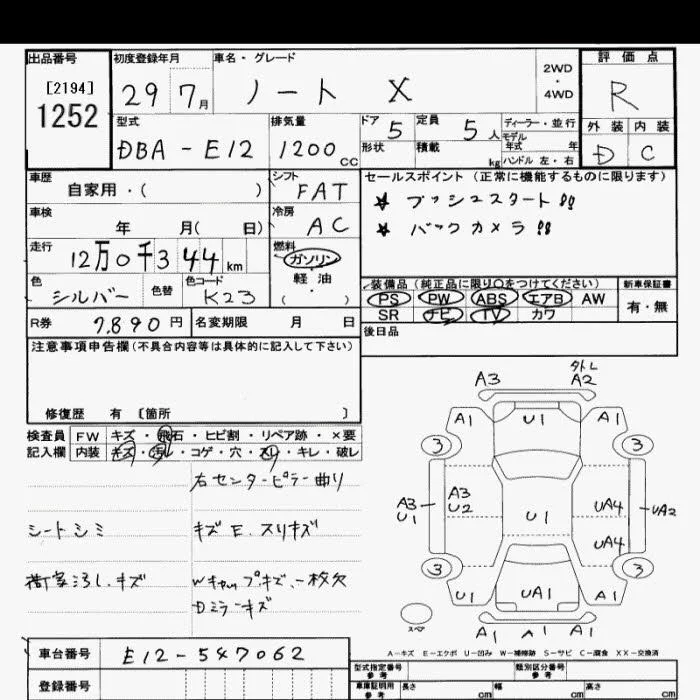 出品番号 初度登録年月 車名・グレード 評価点
[2194] 29 7月 ノート X 2WD・4WD R
1252
型式 排気量 ドア 5 定員 5人 ディーラー・並行 外装 内装
モデル年式 年
DBA-E12 1200CC 形状 積載 kg ハンドル 左・右 D C
車歴 自家用・( ) シフト FAT セールスポイント (正常に機能するものに限ります)
☆ プッシュスタート!!
車検 年 月( 日) 冷房 AC ☆ バックカメラ!!
走行 12万0千344km 燃料 ガソリン
軽油
・( )
色 シルバー 色替 色コード K23
装備品 (純正品に限り○をつけてください) 新車保証書
PS PW ABS エアB AW 有・無
SR ナビ TV カワ
R券 7,890円 名変期限 月 日 後日品
注意事項申告欄(不具合内容等は具体的に記入して下さい)
修復歴 有 〔箇所 〕
検査員 FW キズ・飛石・ヒビ割・リペア跡・×要
記入欄 内装 キズ・汚れ・コゲ・穴・スリ・キレ・破レ
右センターピラー曲り
シートシミ キズE.スリキズ
荷室汚し.キズ Wキャップキズ、一枚欠
Dミラーキズ
A3 外し
A2
A1 U1 A1
3 3
A3
U1
A3
U2
U1 UA4 UA2
UA4
3 3
U1 UA1 A1
スペア A1 A1 A1
A-キズ E-エクボ U-凹み W-補修跡 S-サビ C-腐食 XX-交換済
車台番号 E12-547062
型式指定番号 参考 類別区分番号 参考
登録番号 車庫証明用 参考 長さ cm 幅 cm 高さ cm